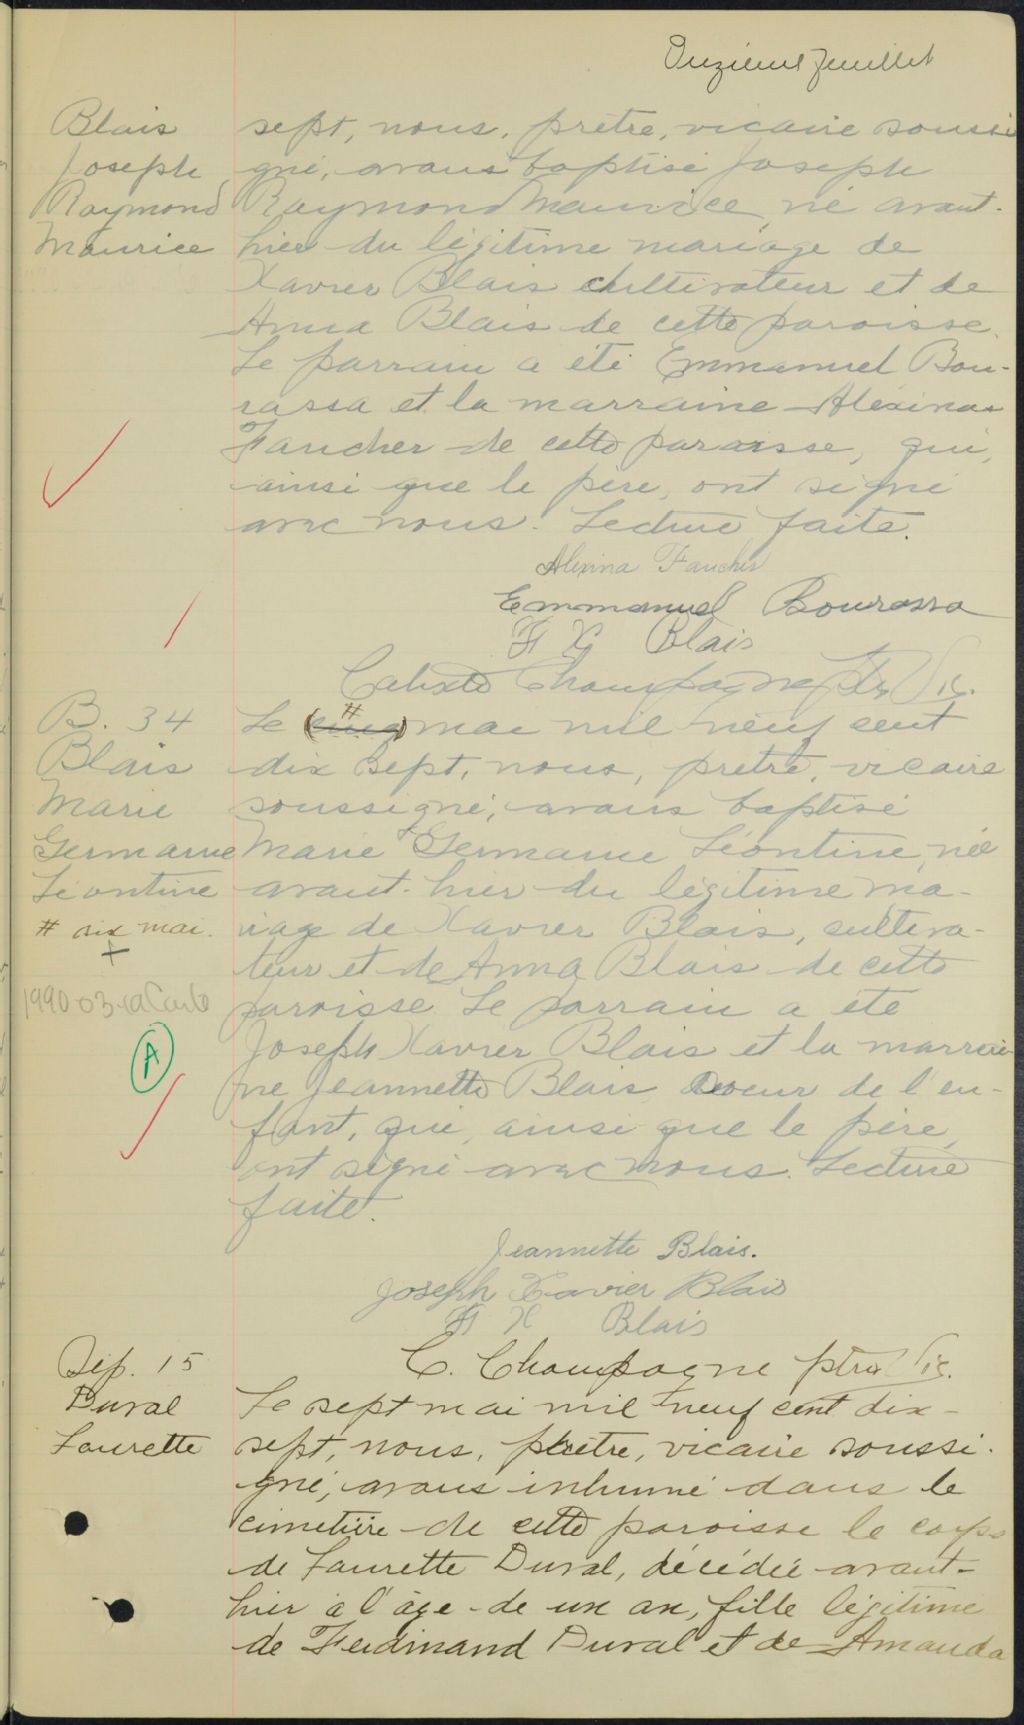 Onzième feuillet
Blais
Joseph
Raymond
Maurice
sept, nous, prêtre, vicaire soussi
gné, avons baptisé Joseph
Raymond Maurice né avant-
hier du légitime mariage de
Xavier Blais cultivateur et de
Anna Blais de cette paroisse.
Le parrain a été Emmanuel Bou-
rassa et la marraine Alexina
Faucher de cette paroisse, qui,
ainsi que le père, ont signé
avec nous. Lecture faite.
Alexina Faucher
Emmanuel Bourassa
F X Blais
Calixte Champagne Ptre Vic.
B. 34
Blais
Marie
Germaine
Léontine
# six mai.
+
1990-03-
A
Le (cinq) # mai mil neuf cent
dix sept, nous, prêtre, vicaire
soussigné, avons baptisé
Marie Germaine Léontine, née
avant-hier du légitime ma-
riage de Xavier Blais, cultiva-
teur et de Anna Blais de cette
paroisse. Le parrain a été
Joseph Xavier Blais et la marrai-
ne Jeannette Blais soeur de l'en-
fant, qui, ainsi que le père,
ont signé avec nous. Lecture
faite.
Jeannette Blais.
Joseph Xavier Blais
F X Blais
C. Champagne ptre Vic.
Sép. 15
Duval
Laurette
Le sept mai mil neuf cent dix-
sept, nous, prêtre, vicaire soussi-
gné, avons inhumé dans le
cimetière de cette paroisse le corps
de Laurette Duval, décédée avant-
hier à l'âge de un an, fille légitime
de Ferdinand Duval et de Amanda